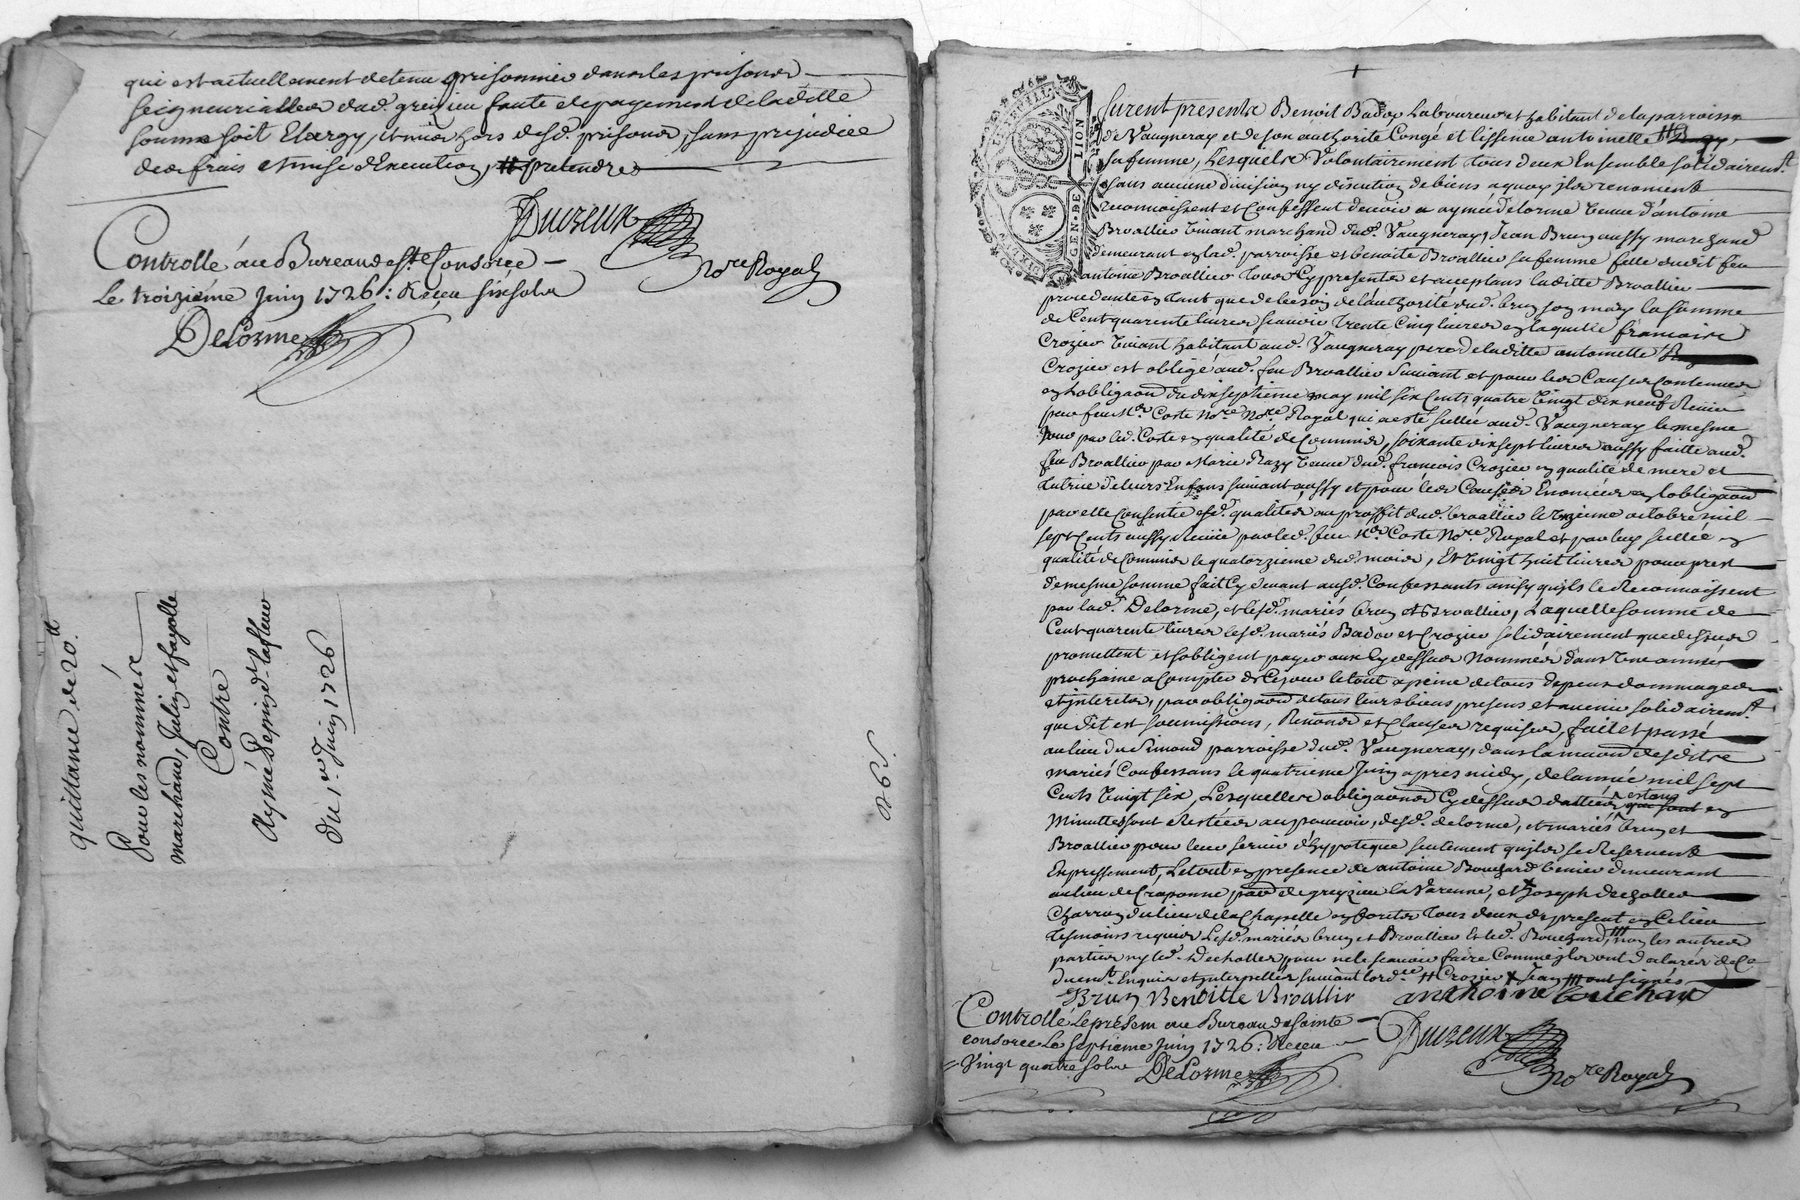 qui est actuellement detenu prisonnier dans les prisons
seigneurialles dud. greizieu faute de payement de laditte
somme soit Elargy, et mis hors desd. prisons, sans prejudice
des frais et mise d'Execution, pretendre
Duvzeux
no.re Royal
Controllé au Bureau de s.te Consorce
Le troizième Juin 1726: Receu six sols
DeLorme
quittance de 20.tt
Pour les nommés
marchand, Julin et fayolle
Contre
Aymé Pepin d. lafleur
du 1.er Juin 1726
GEN. DE LION
furent presents Benoit Bador Laboureur et habitant de la parroisse
de Vaugneray et de son authorité Congé et licsense antoinette
sa femme, Lesquels Volontairement tous deux Ensemble solidairem.t
sans aucune division ny discution de biens a quoy ils renoncent
reconnoissent et Confessent devoir a aymée Delorme veuve d'antoine
Broallier vivant marchand dud. Vaugneray, Jean Brun aussy marchand
demeurant en lad. parroisse et benoite Broallier sa femme fille dudit feu
antoine Broallier tous Cy presents et acceptans laditte Broallier
procedante en tant que de besoin de l'authorité dud. brun son mary la somme
de Cent quarente livres scavoir Trente Cinq livres en laquelle francoise
Crozier vivant habitant aud. Vaugneray pere de laditte antoinette
Crozier est obligé aud. feu Broallier suivant et pour les Causes Contenues
en l'obligaon du dix septieme may mil six Cents quatre vingt dix neuf Receue
par feu M.e Coste No.re Royal qui a esté scellée aud. Vaugneray le mesme
jour par led. Coste en qualité de Commis, soixante dix sept livres aussy faitte aud.
feu Broallier par Marie Razy veuve dud. francois Crozier en qualité de mere et
tutrice de leurs Enfans suivant aussy et pour les Causes Enoncées en l'obligaon
par elle Consentie esd. qualités au proffit dud. broallier le treizieme octobre mil
sept Cents aussy Receue par led. feu M.e Coste No.re Royal et par luy scellée en
qualité de Commis le quatorzieme dud. mois, Et vingt huit livres pour prest
de mesme somme fait Cy devant ausd. Confessants ainsy qu'ils le Reconnoissent
par lad. Delorme, et lesd. mariés brun et Broallier, Laquelle somme de
Cent quarente livres lesd. mariés Bador et Crozier solidairement que dessus
promettent et s'obligent payer aux Cy dessus Nommés dans une année
prochaine a Compter de Ce jour le tout a peine de tous depens dommages
et interets, par obligaon de tous leurs biens presens et avenir solidairem.t
que dit est soumissions, Renons et Clauses requises, fait et passé
au lieu du Simond parroisse dud. Vaugneray, dans la maison desdits
mariés Confessans le quatrieme Juin apres midy, de l'année mil sept
Cents vingt six, Lesquelles obligaons Cy dessus dattées estans en
Minuttes sont Restées au pouvoir desd. delorme, et mariés brun et
Broallier pour leur servir d'hypoteque seulement qu'ils se Reservent
Expressement, Le tout en presence de antoine Bouchard tenier demeurant
au lieu de Craponne parr. de greyzieu la Varenne, et Joseph dechalles
Charron du lieu de la Chapelle en forets tous deux de present en Ce lieu
tesmoins requis Lesd. mariés brun et Broallier et led. Bouchard, non les autres
parties ny led. Dechalles pour ne le scavoir faire Comme ils ont declaré de Ce
duem.t Enquis et interpellés suivant lord.ce # Crozier x Jean ont signés
Brun Benoitte Broallir anthoine bouchard
Controllé Le present au Bureau de sainte
consorce Le septieme Juin 1726: Receu
Vingt quatre sols
DeLorme
Duvzeux
no.re Royal